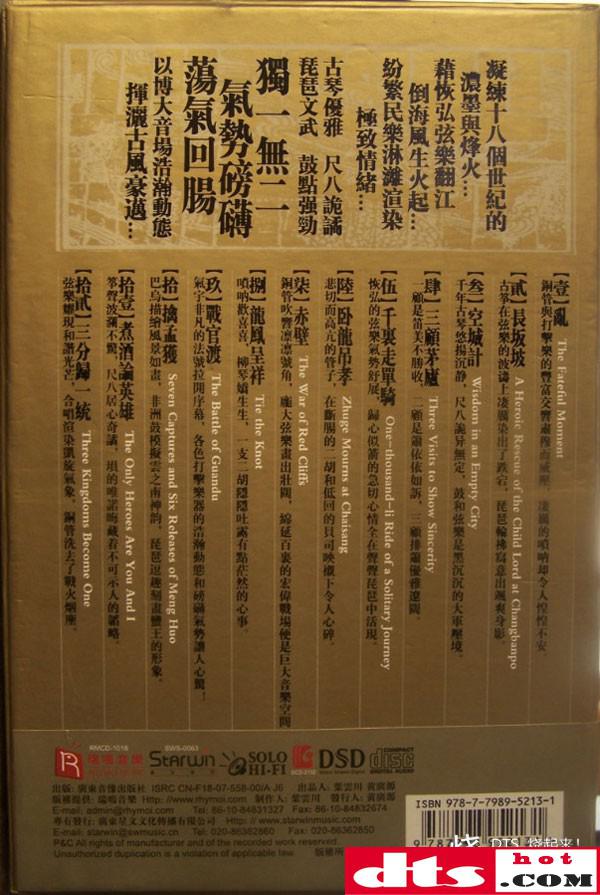 凝練十八個世紀的
濃墨與烽火…
藉恢弘弦樂翻江
倒海風生火起…
紛繁民樂淋灕渲染
極致情緒…
古琴優雅 尺八詭譎
琵琶文武 鼓點强勁
獨一無二
氣勢磅礴
蕩氣回腸
以博大音場浩瀚動態
揮灑古風豪邁…
【壹】亂 The Fateful Moment
銅管與打擊樂的豐富交響肅穆而威壓，凄厲的嗩吶却令人惶惶不安。
【貳】長坂坡 A Heroic Rescue of the Child Lord at Changbanpo
古筝在弦樂的波濤上凄厲染出了跌宕，琵琶輪拂寫意出颯爽身影。
【叁】空城計 Wisdom in an Empty City
千年古琴悠揚沉静，尺八詭异無定，鼓和弦樂是黑沉沉的大軍壓境。
【肆】三顧茅廬 Three Visits to Show Sincerity
一顧是笛美不勝收，二顧是簫依依如訴，三顧排簫優雅遼闊。
【伍】千裏走單騎 One-thousand-li Ride of a Solitary Journey
恢弘的弦樂氣勢舒展，歸心似箭的急切心情全在聲聲琵琶中活現。
【陸】卧龍吊孝 Zhuge Mourns at Chaisang
悲切而高亢的管子，在斷腸的二胡和低回的貝司映襯下令人心碎。
【柒】赤壁 The War of Red Cliffs
銅管吹響凛凛號角，龐大弦樂畫出壯闊，綿延百裏的宏偉戰場便是巨大音樂空間
【捌】龍鳳呈祥 Tie the Knot
嗩吶歡喜喜，柳琴嬌生生，一支二胡隱隱吐露有點茫然的心事。
【玖】戰官渡 The Battle of Guandu
氣宇非凡的法號拉開序幕，各色打擊樂器的浩瀚動態和磅礴氣勢讓人心驚！
【拾】擒孟獲 Seven Captures and Six Releases of Meng Huo
巴烏描繪風景如畫，非洲鼓模擬雲之南神韵，琵琶逗趣刻畫蠻王的形象。
【拾壹】煮酒論英雄 The Only Heroes Are You And I
筝聲波瀾不驚，尺八居心奇譎，塤的唯諾晦藏着不可示人的韜略。
【拾貳】三分歸一統 Three Kingdoms Become One
弦樂耀現和諧光芒，合唱渲染凱旋氣象，銅管洗去了戰火烟塵。
RMCD-1018
瑞鳴音樂
SWS-0063
STARWIN
SOLO HI-FI
DSD
Direct Stream Digital
COMPACT disc DIGITAL AUDIO
出版: 廣東音像出版社 ISRC CN-F18-07-558-00/A.J6 出品人: 葉雲川 黄廣郎
版權提供: 瑞鳴音樂 Http: //www.rhymoi.com 制作人: 葉雲川 發行人: 黄廣郎
E-mail: admin@rhymoi.com Tel: 86-10-84831327 Fax: 86-10-84832674
專有發行: 廣東星文文化傳播有限公司 Http: // www.starwinmusic.com
E-mail: starwin@swmusic.cn Tel: 020-86362860 Fax: 020-86362850
P&C All rights of manufacturer and of the recorded work reserved.
Unauthorized duplication is a violation of applicable law. 版權所
ISBN 978-7-7989-5213-1
DTS 烧起来!
dts hot .COM